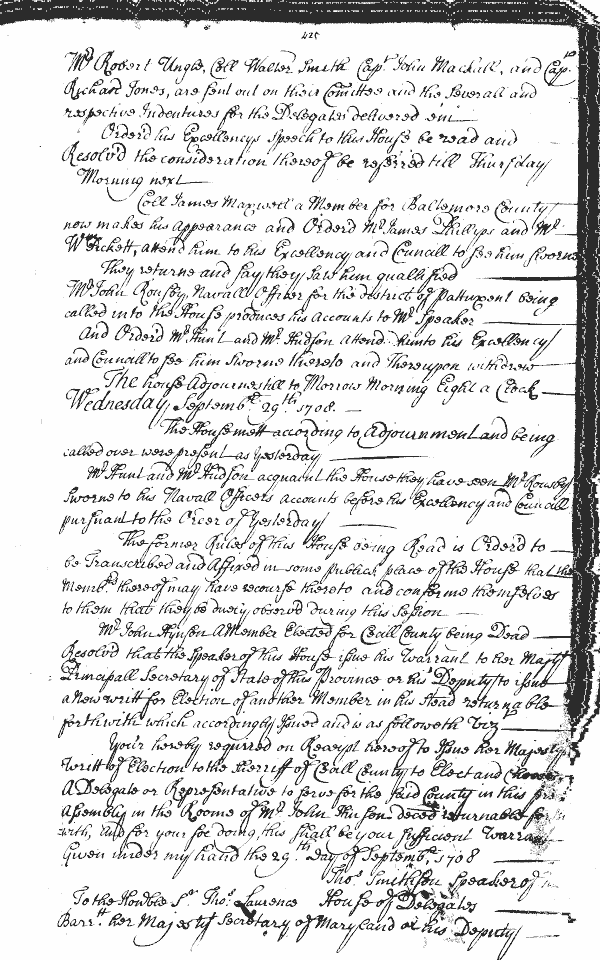 425
Mr Robert Ungle, Coll Walter Smith Capt John Mackall, and Capt
Richard Jones, are sent out on their Comittee and the Severall and
respective Indentures for the Delegates delivered em
Orderd his Excellencys Speech to this House be read and
Resolv'd the consideration thereof be referred till Thursday
Morning next
Coll James Maxwell a Member for Baltemore County
now makes his Appearance and Orderd Mr James Phillips and Mr
Wm attend him to his Excellency and Councill to See him Sworne
They returne and Say they Saw him qualified
Mr John Rousby Navall Officer for the district of Pattuxent being
called into the House produces his accounts to Mr Speaker
And Orderd Mr Hunt and Mr Hudson attend him to his Excellency
and Councill to See him Sworne thereto and Thereupon withdrew
The house Adjournes till to Morrow Morning Eight a Clock
Wednesday Septembr 29th 1708.
The House mett according to Adjournment and being
called over were present as yesterday
Mr Hunt and Mr Hudson acquaint the House they have seen Mr Rousby
Sworne to his Navall Officers accounts before his Excellency and Councill
pursuant to the Order of Yesterday
The former Rules of this House being Read is Orderd to
be Transcribed and Affixed in some publick place of the House that the
Membrs thereof may have recourse thereto and conforme themselves
to them that they be duely observd during this Session
Mr John Hynson A Member Elected for Cecill County being Dead
Resolv'd that the Speaker of this House issue his Warrant to her Majtys
Principall Secretary of State of this Province or his Deputy to issue
a New writt for Election of another Member in his Stead returnable
forthwith which accordingly Issued and is as followeth Vizt
Your hereby required on Receipt hereof to Issue her Majestys
Writt of Election to the Sherriff of Cecill County to Elect and
A Delegate or Representative to serve for the said County in this
Assembly in the Roome of Mr John Hinson deced returnable
with, And for your Soe doing this shall be your Sufficient Warrant
Given under my hand the 29th Day of Septembr 1708
Thos Smithson Speaker of
To the Honble Sr Thos Laurence House of Delegates
Barrtt her Majestys Secretary of Maryland or his Deputy